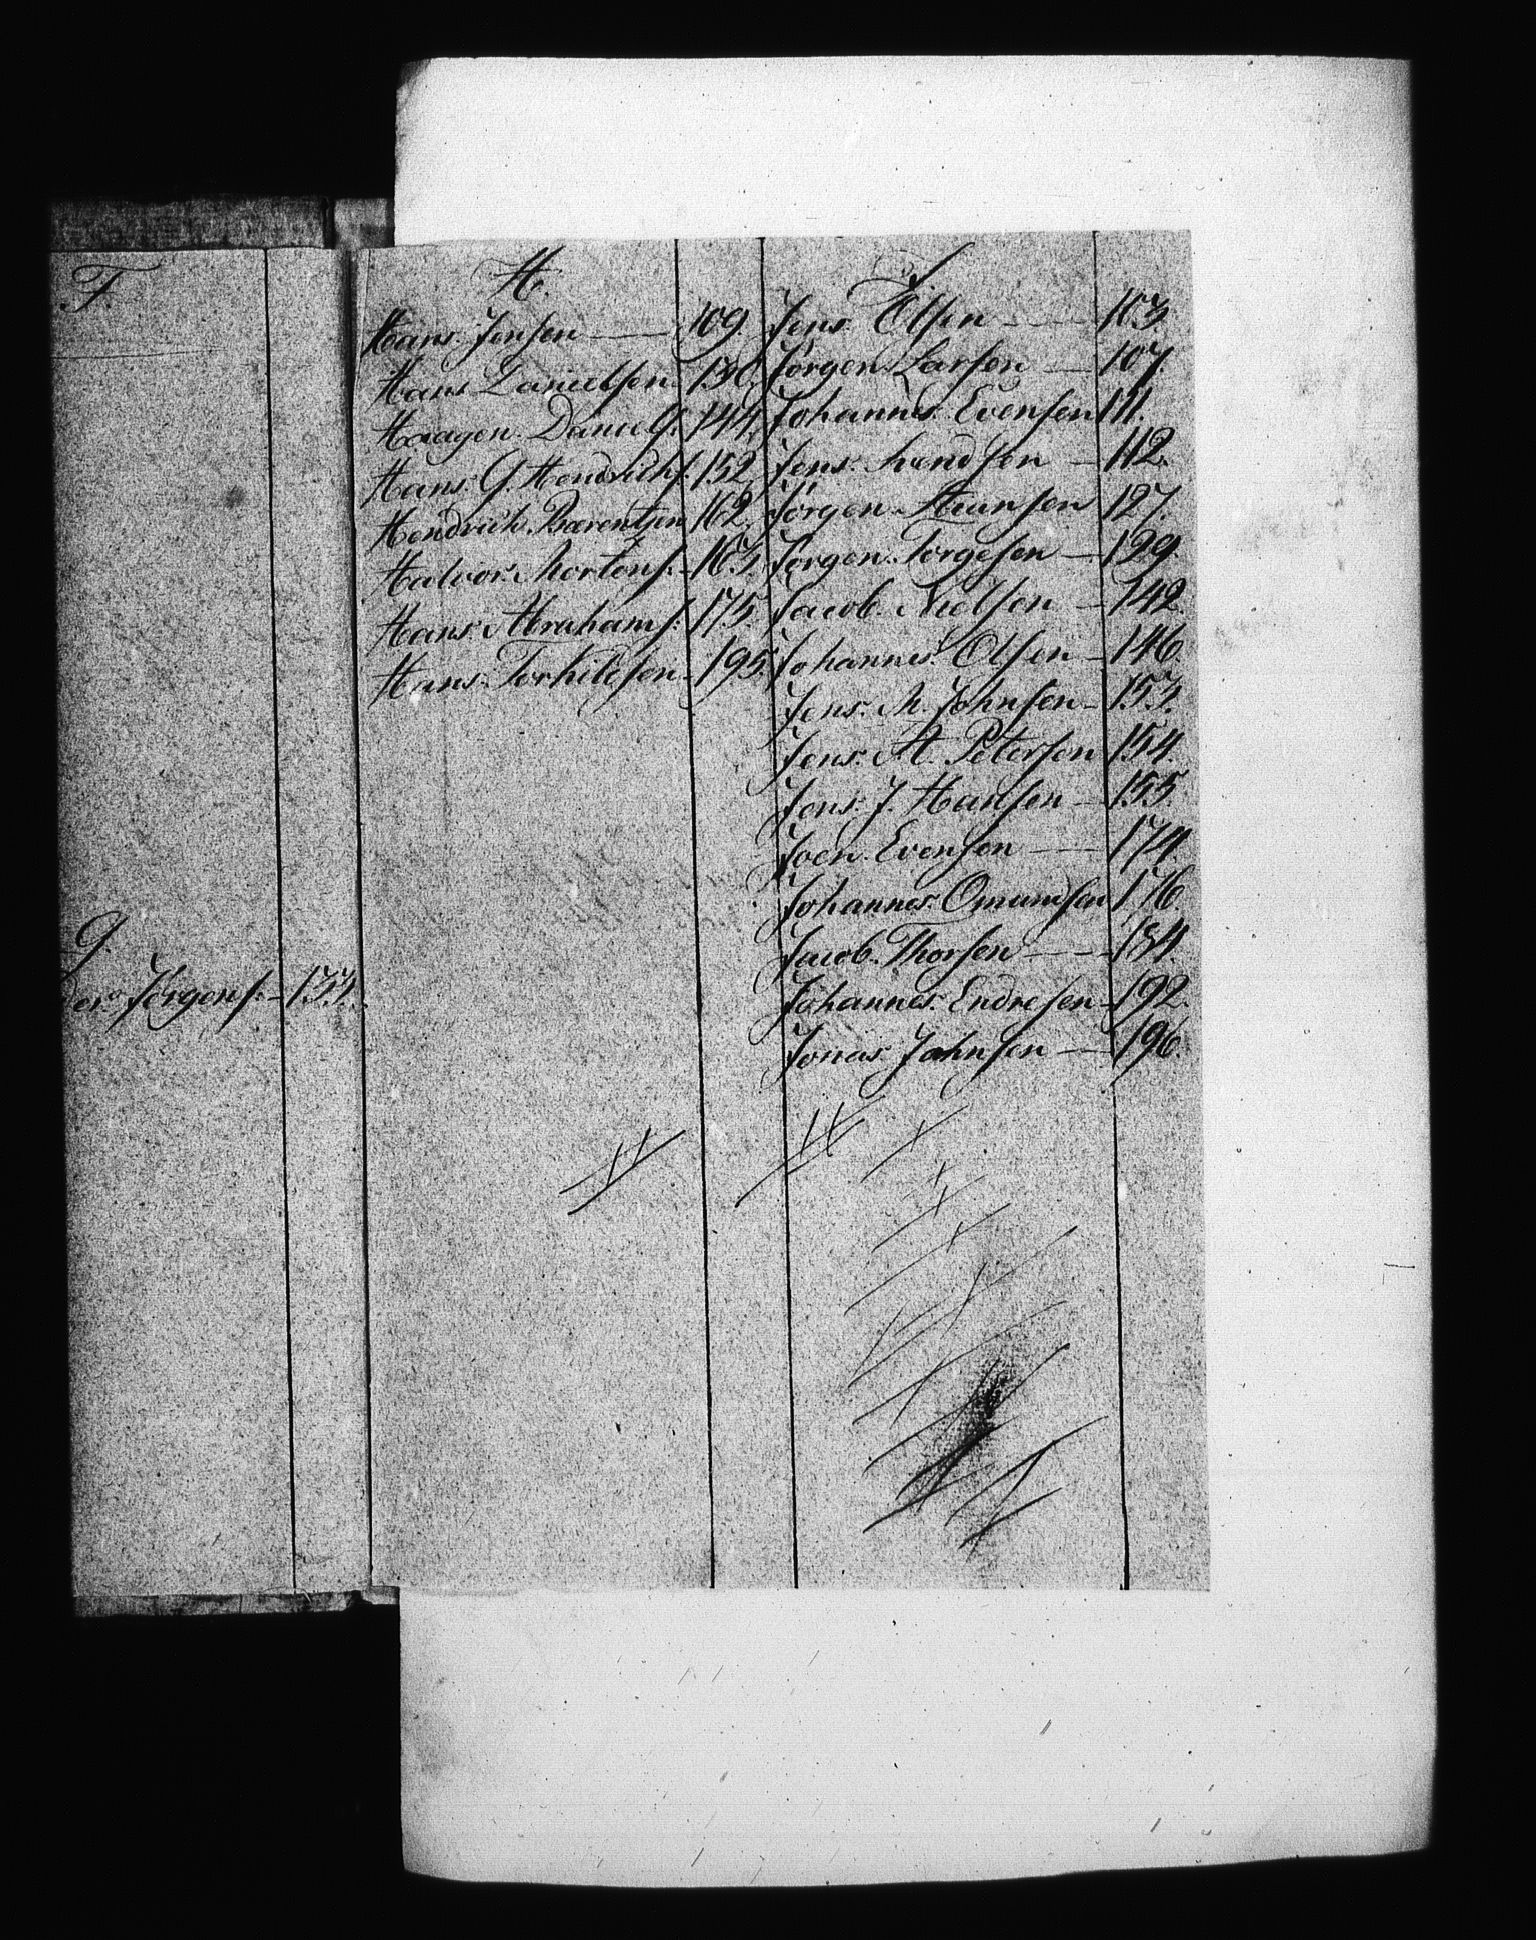 F.
G.
Jørgens. - 133.
H.
Hans Jensen — 109.
Hans Danielsen - 130.
Haagen Daniels. 144.
Hans G. Hendrichs. 152.
Hendrich Bærentsen 162.
Halvor Mortens. - 163.
Hans Abrahams. 175.
Hans Torkildsen - 195.
J.
Jens Olsen — 103.
Jørgen Larsen — 107.
Johannes Evensen 111.
Jens — 112.
Jørgen Hansen 127.
Jørgen Torgesen — 129.
Jacob Nielsen — 142.
Johannes Olsen — 146.
Jens M. Johnsen - 153.
Jens A. Petersen 154.
Jens J. Hansen — 155.
Joen Evensen — 174.
Johannes Omundsen 176.
Jacob Thorsen — 184.
Johannes Endresen - 192.
Jonas Johnsen — 196.